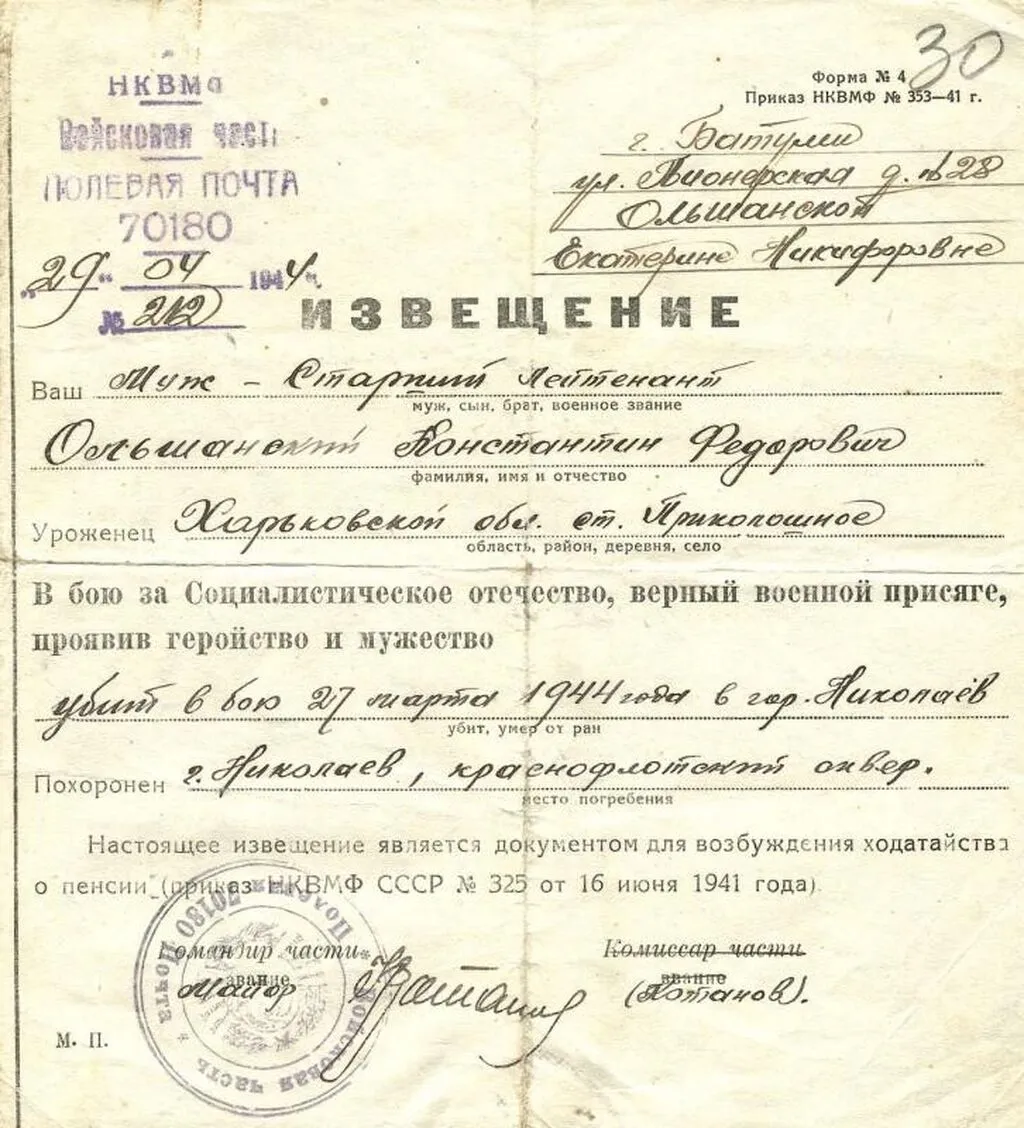 30
НКВМФ
Войсковая часть
ПОЛЕВАЯ ПОЧТА
70180
"29" 04 1944 г.
№ 212
Форма № 4
Приказ НКВМФ № 353—41 г.
г. Батуми
ул. Пионерская д. № 28
Ольшанской
Екатерине Никифоровне
ИЗВЕЩЕНИЕ
Ваш Муж – Старший Лейтенант
муж, сын, брат, военное звание
Ольшанский Константин Федорович
фамилия, имя и отчество
Уроженец Харьковской обл. ст. Приколошное
область, район, деревня, село
В бою за Социалистическое отечество, верный военной присяге,
проявив геройство и мужество
убит в бою 27 марта 1944 года в гор. Николаев
убит, умер от ран
Похоронен г. Николаев, краснофлотский сквер.
место погребения
Настоящее извещение является документом для возбуждения ходатайства
о пенсии (приказ НКВМФ СССР № 325 от 16 июня 1941 года)
Командир части
звание
Майор Котанов
Комиссар части
звание
(Котанов).
М. П.
Войсковая часть * Полевая Почта 70180 *